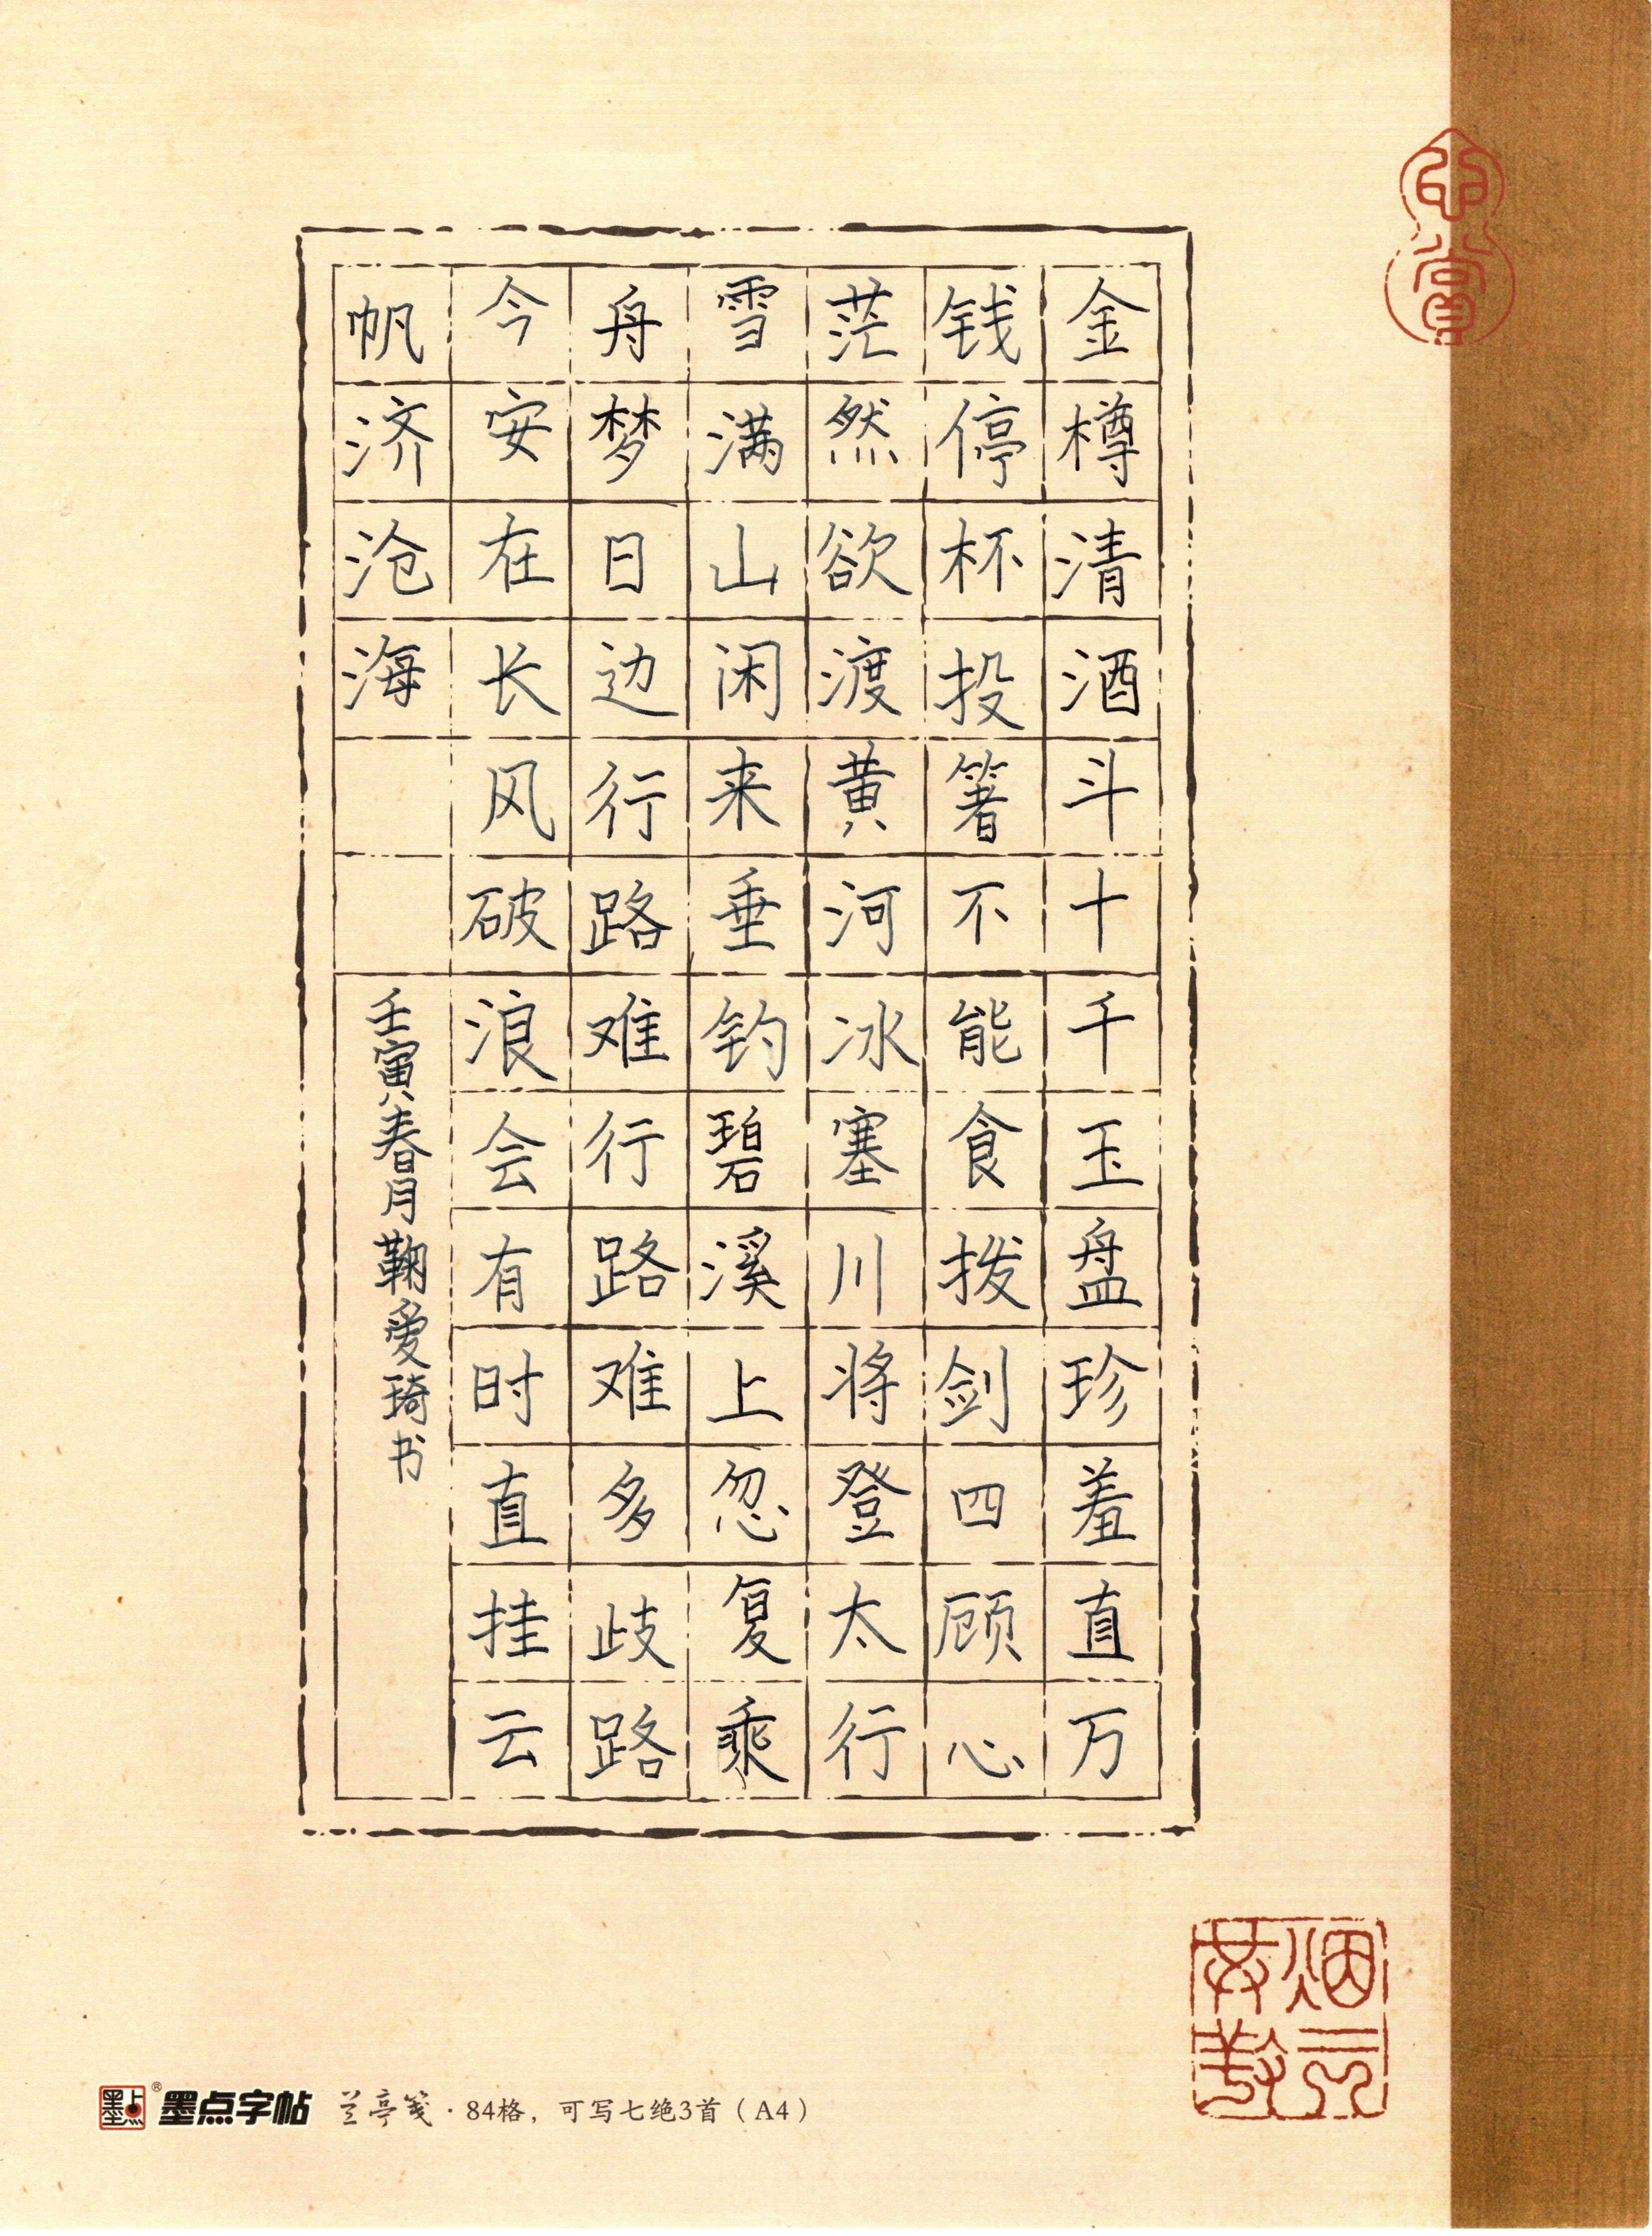 金樽清酒斗十千玉盘珍羞直万
钱停杯投箸不能食拔剑四顾心
茫然欲渡黄河冰塞川将登太行
雪满山闲来垂钓碧溪上忽复乘
舟梦日边行路难行路难多歧路
今安在长风破浪会有时直挂云
帆济沧海
壬寅春月鞠爱琦书
墨点® 墨点字帖 兰亭笺·84格，可写七绝3首（A4）